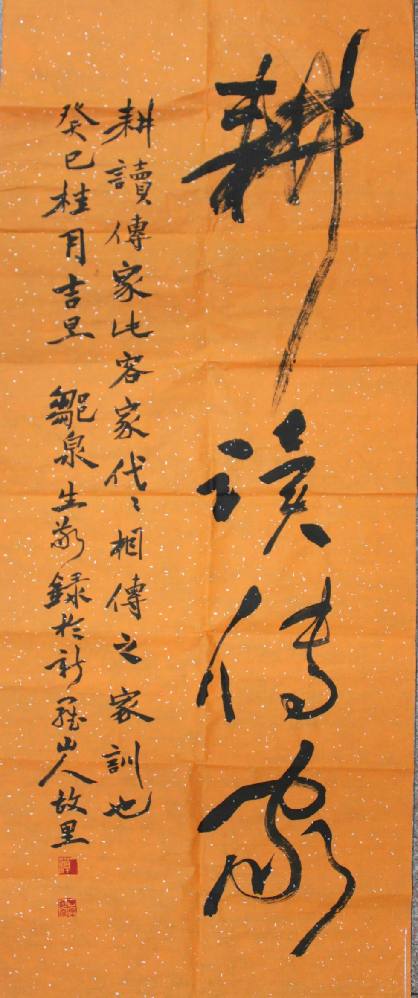 耕读传家
耕讀傳家此客家代〻相傳之家訓也
癸巳桂月吉旦 鄒泉生敬録於新羅山人故里